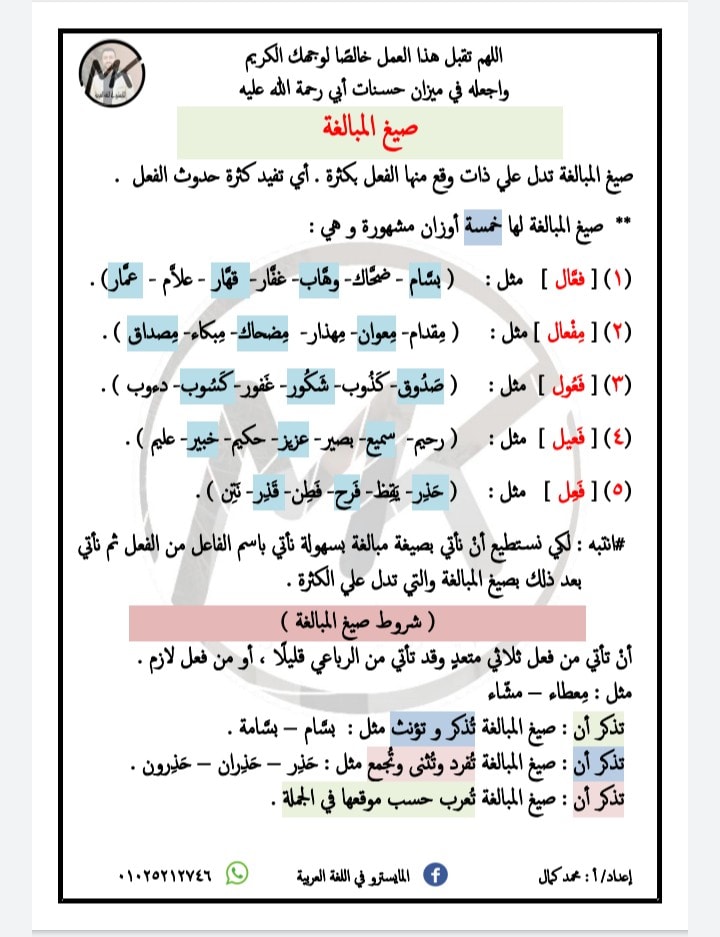 اللهم تقبل هذا العمل خالصًا لوجهك الكريم
واجعله في ميزان حسنات أبي رحمة الله عليه
MK
صيغ المبالغة
صيغ المبالغة تدل علي ذات وقع منها الفعل بكثرة . أي تفيد كثرة حدوث الفعل .
** صيغ المبالغة لها خمسة أوزان مشهورة و هي :
(١) [ فعَّال ] مثل : ( بسَّام - ضحَّاك- وهَّاب- غفَّار- قهَّار - علاَّم - عمَّار) .
(٢) [ مِفْعال ] مثل : ( مِقدام- مِعوان- مِهذار- مِضحاك- مِبكاء- مِصداق ) .
(٣) [ فَعُول ] مثل : ( صَدُوق- كَذُوب- شَكُور- غَفور- كَسُوب- دءوب ) .
(٤) [ فَعيل ] مثل : ( رحيم- سميع- بصير- عزيز- حكيم- خبير- عليم ) .
(٥) [ فَعِل ] مثل : ( حَذِر- يَقِظ- فَرِح- فَطِن- قَذِر- نَتِن ) .
#انتبه : لكي نستطيع أنْ نأتي بصيغة مبالغة بسهولة نأتي باسم الفاعل من الفعل ثم نأتي
بعد ذلك بصيغ المبالغة والتي تدل علي الكثرة .
( شروط صيغ المبالغة )
أنْ تأتي من فعل ثلاثي متعدٍ وقد تأتي من الرباعي قليلًا ، أو من فعل لازم .
مثل : مِعطاء – مشَّاء
تذكر أن : صيغ المبالغة تُذكر و تؤنث مثل : بسَّام – بسَّامة .
تذكر أن : صيغ المبالغة تُفرد وتُثنى وتُجمع مثل : حَذِر – حَذِران – حَذِرون .
تذكر أن : صيغ المبالغة تُعرب حسب موقعها في الجملة .
إعداد/ أ : محمد كمال المايسترو في اللغة العربية ٠١٠٢٥٢١٢٧٤٦